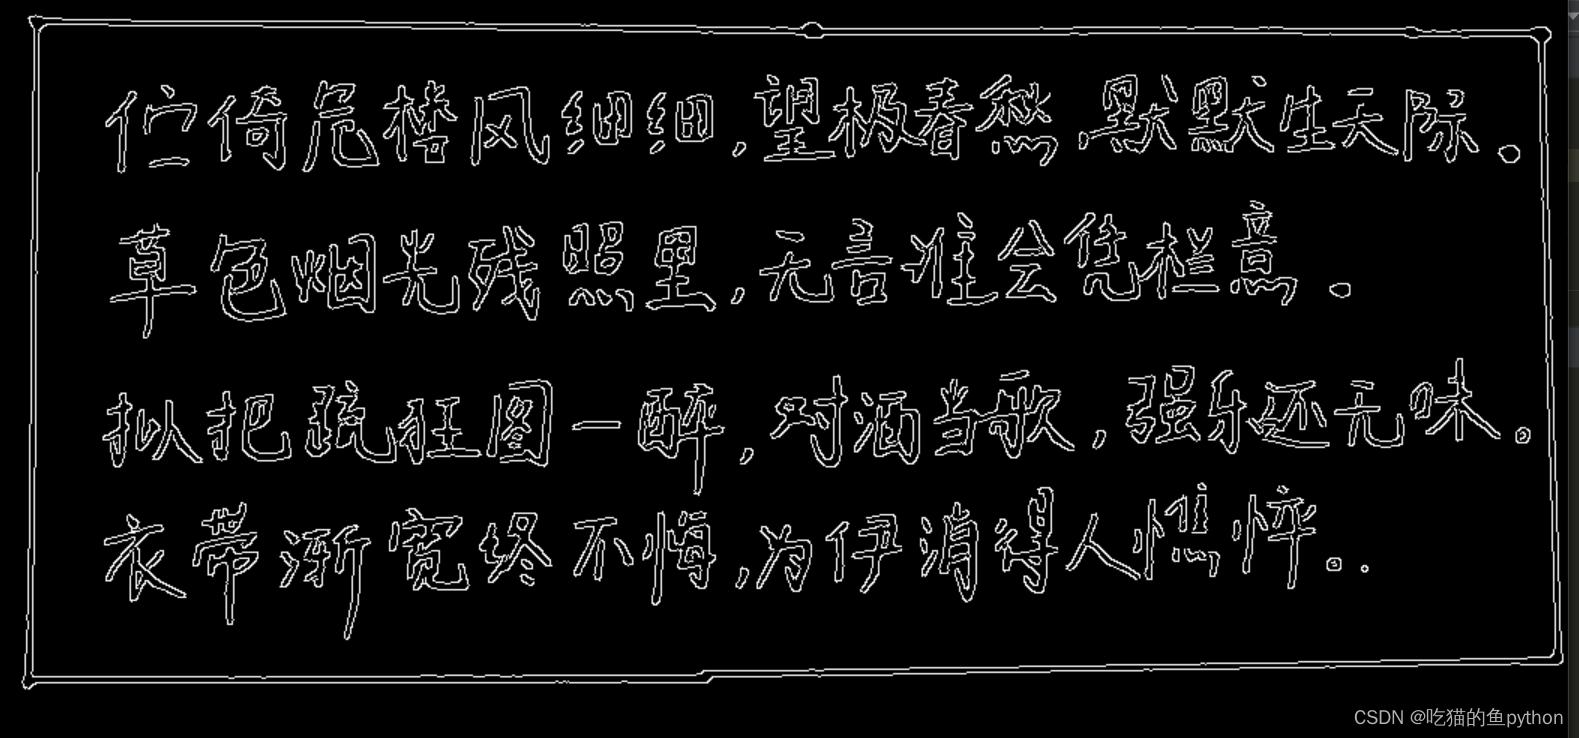 伫倚危楼风细细,望极春愁,默默生天际。
草色烟光残照里,无言谁会凭栏意。
拟把疏狂图一醉,对酒当歌,强乐还无味。
衣带渐宽终不悔,为伊消得人憔悴。.
CSDN @吃猫的鱼python